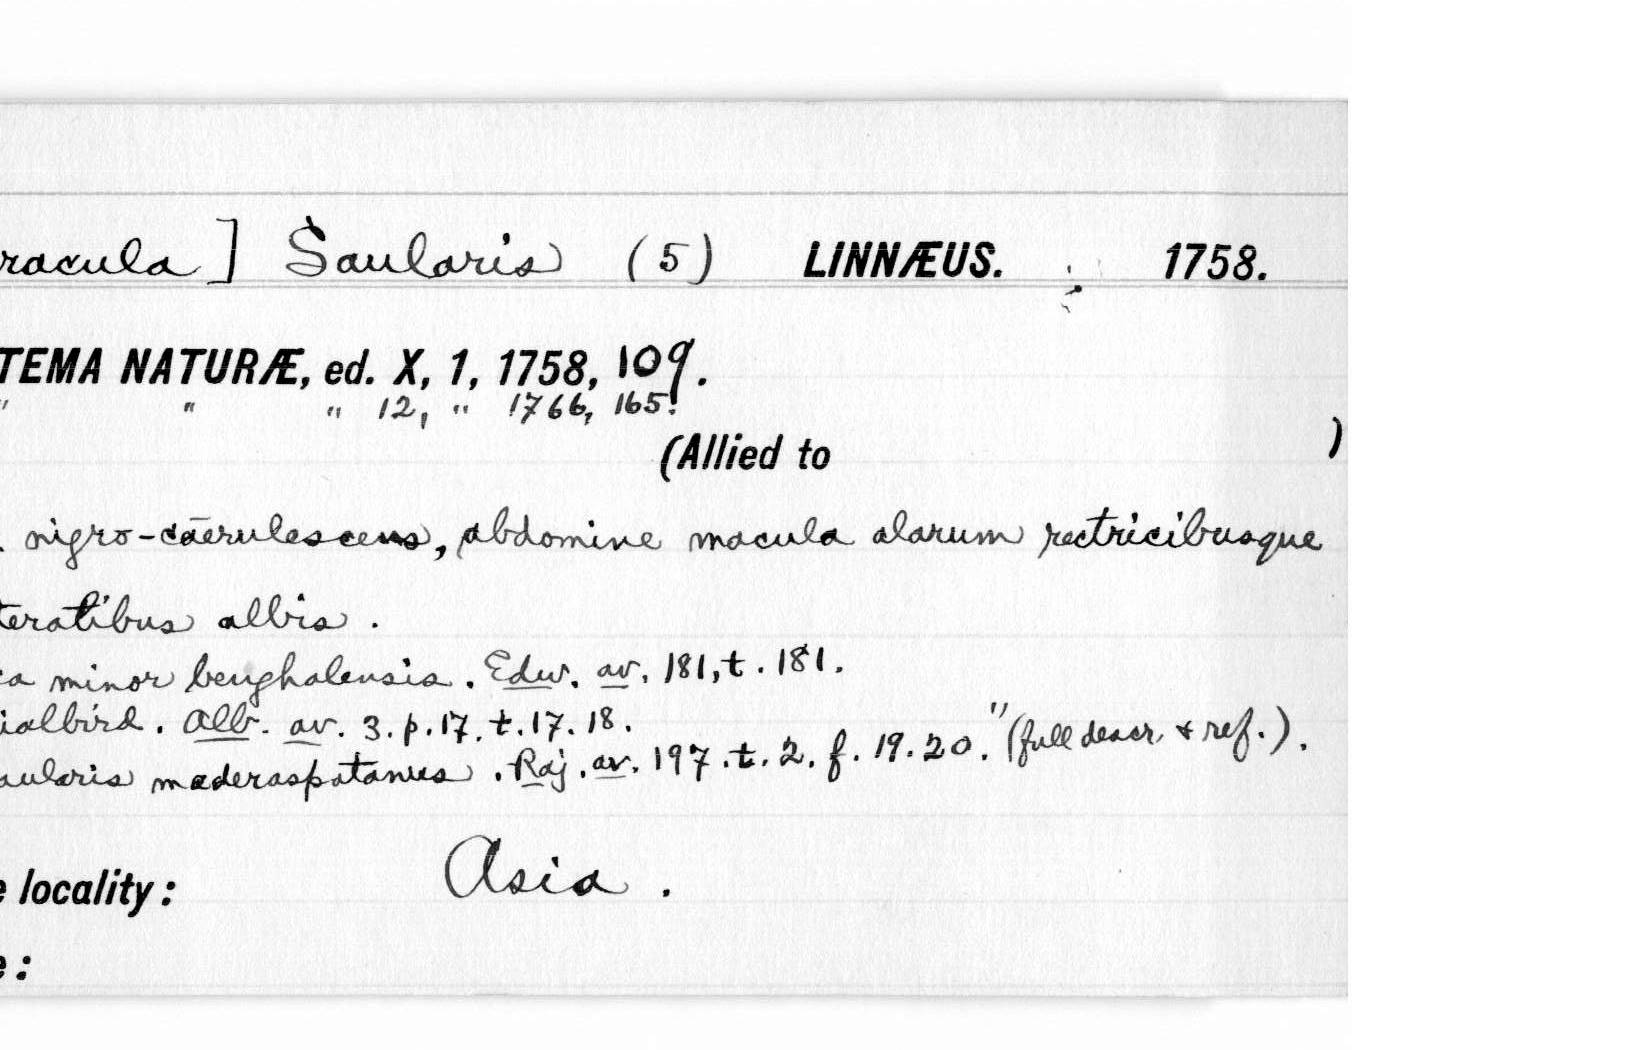 racula] Saularis (5) LINNÆUS. 1758.
TEMA NATURÆ, ed. X, 1, 1758, 109.
" " " 12, " 1766, 165.
(Allied to )
. nigro-cærulescens, abdomine macula alarum rectricibusque
teratibus albis.
ca minor benghalensis. Edw. av. 181, t. 181.
ialbird. Alb. av. 3. p. 17. t. 17. 18.
aularis maderaspatanus. Raj. av. 197. t. 2. f. 19. 20." (full descr. & ref.).
e locality: Asia.
e: